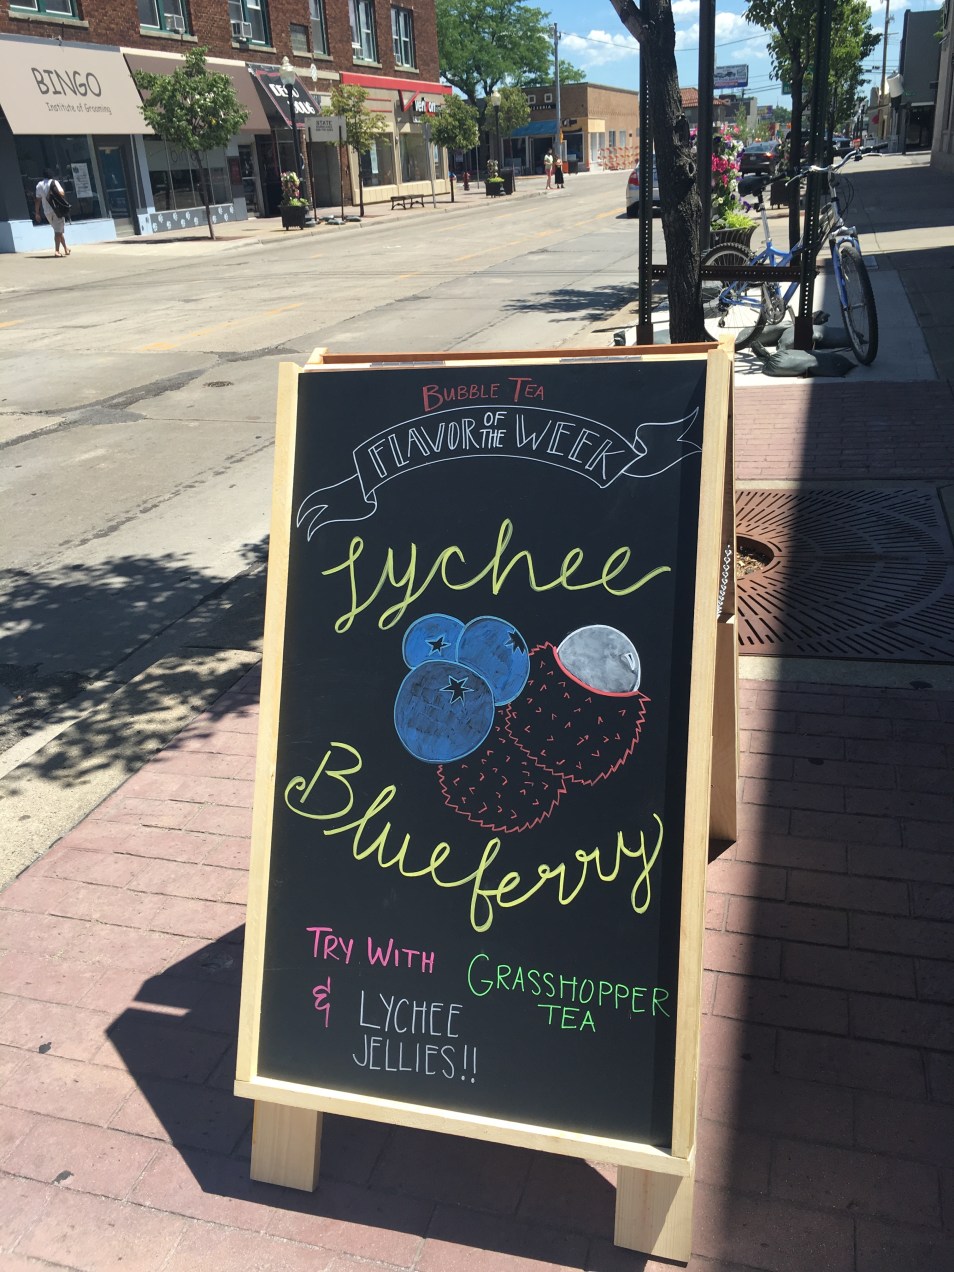 BINGO
Institute of Grooming
verizon
BUBBLE TEA
FLAVOR OF THE WEEK
Lychee
Blueferry
TRY WITH
GRASSHOPPER
TEA
& LYCHEE
JELLIES!!